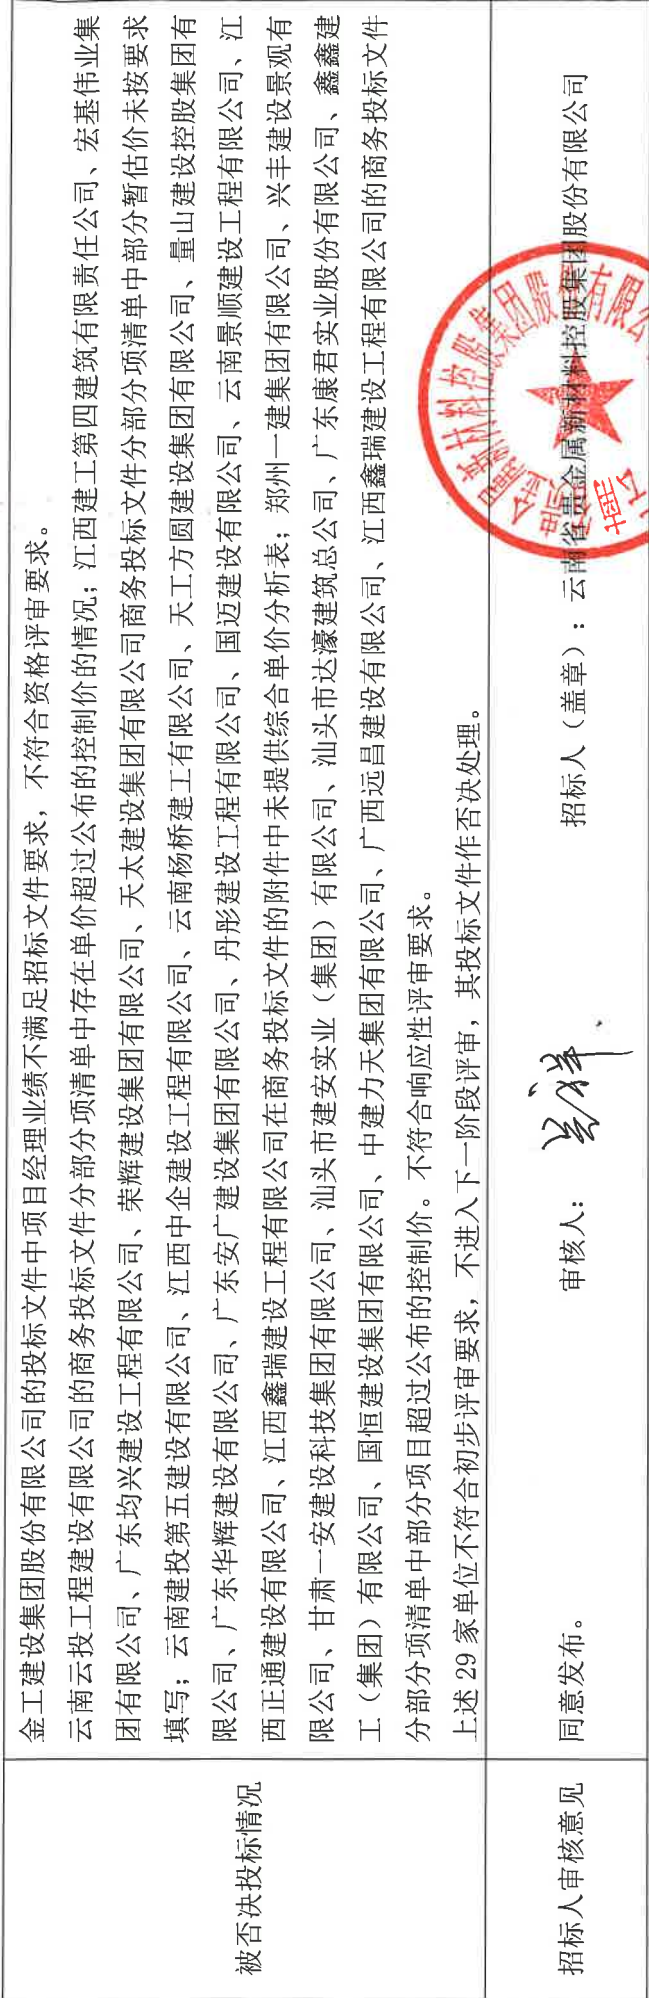 被否决投标情况
金工建设集团股份有限公司的投标文件中项目经理业绩不满足招标文件要求，不符合资格评审要求。
云南云投工程建设有限公司的商务投标文件分部分项清单中存在单价超过公布的控制价的情况；江西建工第四建筑有限责任公司、宏基伟业集
团有限公司、广东均兴建设工程有限公司、荣辉建设集团有限公司、天太建设集团有限公司商务投标文件分部分项清单中部分暂估价未按要求
填写；云南建投第五建设有限公司、江西中企建设工程有限公司、云南杨桥建工有限公司、天工方圆建设集团有限公司、量山建设控股集团有
限公司、广东华辉建设有限公司、广东安广建设集团有限公司、丹彤建设工程有限公司、国迈建设有限公司、云南景顺建设工程有限公司、江
西正通建设有限公司、江西鑫瑞建设工程有限公司在商务投标文件的附件中未提供综合单价分析表；郑州一建集团有限公司、兴丰建设景观有
限公司、甘肃一安建设科技集团有限公司、汕头市建安实业（集团）有限公司、汕头市达濠建筑总公司、广东康君实业股份有限公司、鑫鑫建
工（集团）有限公司、国恒建设集团有限公司、中建力天集团有限公司、广西远昌建设有限公司、江西鑫瑞建设工程有限公司的商务投标文件
分部分项清单中部分项目超过公布的控制价。不符合响应性评审要求。
上述 29 家单位不符合初步评审要求，不进入下一阶段评审，其投标文件作否决处理。
招标人审核意见
同意发布。
审核人：
招标人（盖章）：云南省贵金属新材料控股集团股份有限公司